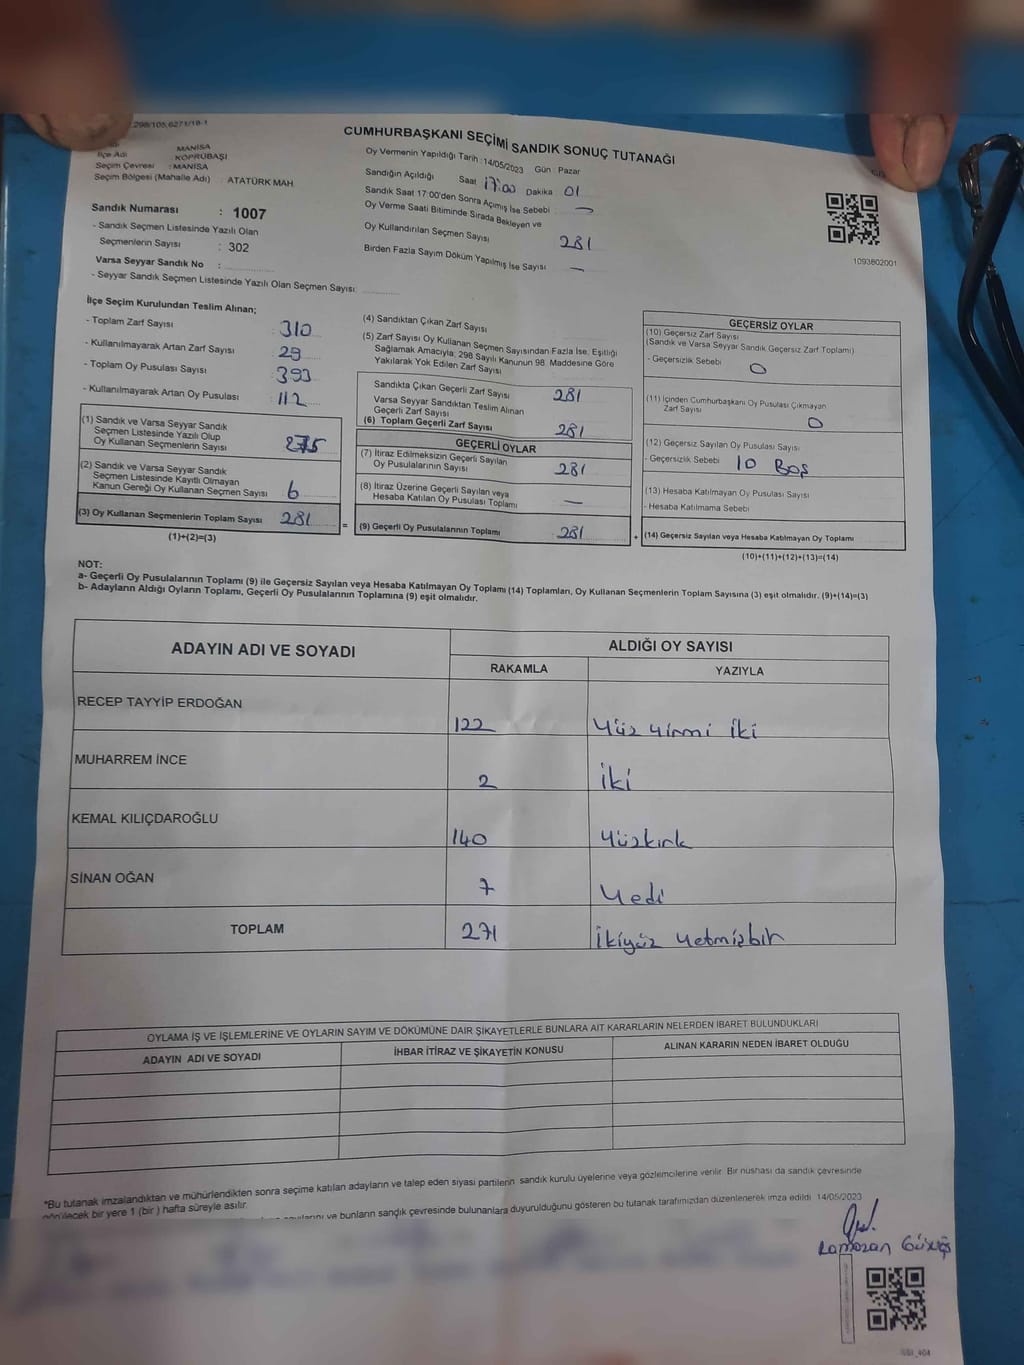 298/105,6271/18-1
CUMHURBAŞKANI SEÇİMİ SANDIK SONUÇ TUTANAĞI
MANİSA
İlçe Adı : KÖPRÜBAŞI
Seçim Çevresi : MANİSA
Seçim Bölgesi (Mahalle Adı) : ATATÜRK MAH.
Sandık Numarası : 1007
- Sandık Seçmen Listesinde Yazılı Olan
Seçmenlerin Sayısı : 302
Varsa Seyyar Sandık No :
- Seyyar Sandık Seçmen Listesinde Yazılı Olan Seçmen Sayısı:
Oy Vermenin Yapıldığı Tarih : 14/05/2023 Gün : Pazar
Sandığın Açıldığı Saat 17:00 Dakika 01
Sandık Saat 17:00'den Sonra Açımış İse Sebebi : —
Oy Verme Saati Bitiminde Sırada Bekleyen ve
Oy Kullandırılan Seçmen Sayısı 281
Birden Fazla Sayım Döküm Yapılmış İse Sayısı —
1093802001
İlçe Seçim Kurulundan Teslim Alınan;
- Toplam Zarf Sayısı : 310
- Kullanılmayarak Artan Zarf Sayısı : 29
- Toplam Oy Pusulası Sayısı : 393
- Kullanılmayarak Artan Oy Pusulası : 112
(1) Sandık ve Varsa Seyyar Sandık
Seçmen Listesinde Yazılı Olup
Oy Kullanan Seçmenlerin Sayısı 275
(2) Sandık ve Varsa Seyyar Sandık
Seçmen Listesinde Kayıtlı Olmayan
Kanun Gereği Oy Kullanan Seçmen Sayısı 6
(3) Oy Kullanan Seçmenlerin Toplam Sayısı 281
(1)+(2)=(3)
=
(4) Sandıktan Çıkan Zarf Sayısı
(5) Zarf Sayısı Oy Kullanan Seçmen Sayısından Fazla İse, Eşitliği
Sağlamak Amacıyla; 298 Sayılı Kanunun 98. Maddesine Göre
Yakılarak Yok Edilen Zarf Sayısı
Sandıkta Çıkan Geçerli Zarf Sayısı 281
Varsa Seyyar Sandıktan Teslim Alınan
Geçerli Zarf Sayısı
(6) Toplam Geçerli Zarf Sayısı 281
GEÇERLİ OYLAR
(7) İtiraz Edilmeksizin Geçerli Sayılan
Oy Pusulalarının Sayısı 281
(8) İtiraz Üzerine Geçerli Sayılan veya
Hesaba Katılan Oy Pusulası Toplamı —
(9) Geçerli Oy Pusulalarının Toplamı 281
+
GEÇERSİZ OYLAR
(10) Geçersiz Zarf Sayısı
(Sandık ve Varsa Seyyar Sandık Geçersiz Zarf Toplamı)
- Geçersizlik Sebebi : 0
(11) İçinden Cumhurbaşkanı Oy Pusulası Çıkmayan
Zarf Sayısı 0
(12) Geçersiz Sayılan Oy Pusulası Sayısı
- Geçersizlik Sebebi 10 Boş
(13) Hesaba Katılmayan Oy Pusulası Sayısı
- Hesaba Katılmama Sebebi
(14) Geçersiz Sayılan veya Hesaba Katılmayan Oy Toplamı
(10)+(11)+(12)+(13)=(14)
NOT:
a- Geçerli Oy Pusulalarının Toplamı (9) ile Geçersiz Sayılan veya Hesaba Katılmayan Oy Toplamı (14) Toplamları, Oy Kullanan Seçmenlerin Toplam Sayısına (3) eşit olmalıdır. (9)+(14)=(3)
b- Adayların Aldığı Oyların Toplamı, Geçerli Oy Pusulalarının Toplamına (9) eşit olmalıdır.
ADAYIN ADI VE SOYADI ALDIĞI OY SAYISI
RAKAMLA YAZIYLA
RECEP TAYYİP ERDOĞAN 122 Yüz yirmi iki
MUHARREM İNCE 2 iki
KEMAL KILIÇDAROĞLU 140 Yüzkırk
SİNAN OĞAN 7 Yedi
TOPLAM 271 İkiyüz yetmişbir
OYLAMA İŞ VE İŞLEMLERİNE VE OYLARIN SAYIM VE DÖKÜMÜNE DAİR ŞİKAYETLERLE BUNLARA AİT KARARLARIN NELERDEN İBARET BULUNDUKLARI
ADAYIN ADI VE SOYADI İHBAR İTİRAZ VE ŞİKAYETİN KONUSU ALINAN KARARIN NEDEN İBARET OLDUĞU
*Bu tutanak imzalandıktan ve mühürlendikten sonra seçime katılan adayların ve talep eden siyasi partilerin sandık kurulu üyelerine veya gözlemcilerine verilir. Bir nüshası da sandık çevresinde
görülecek bir yere 1 (bir) hafta süreyle asılır.
ve bunların sandık çevresinde bulunanlara duyurulduğunu gösteren bu tutanak tarafımızdan düzenlenerek imza edildi. 14/05/2023
Ramazan